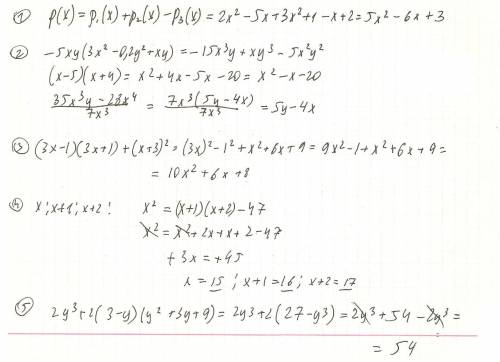 ① p(x) = p₁(x) + p₂(x) - p₃(x) = 2x² - 5x + 3x² + 1 - x + 2 = 5x² - 6x + 3
② -5xy(3x² - 0,2y² + xy) = -15x³y + xy³ - 5x²y²
(x-5)(x+4) = x² + 4x - 5x - 20 = x² - x - 20
(35x³y - 28x⁴)/(7x³) = 7x³(5y - 4x)/(7x³) = 5y - 4x
③ (3x-1)(3x+1) + (x+3)² = (3x)² - 1² + x² + 6x + 9 = 9x² - 1 + x² + 6x + 9 =
= 10x² + 6x + 8
④ x; x+1; x+2! x² = (x+1)(x+2) - 47
x² = x² + 2x + x + 2 - 47
+3x = +45
x = 15; x+1 = 16; x+2 = 17
⑤ 2y³ + 2(3-y)(y² + 3y + 9) = 2y³ + 2(27 - y³) = 2y³ + 54 - 2y³ =
= 54